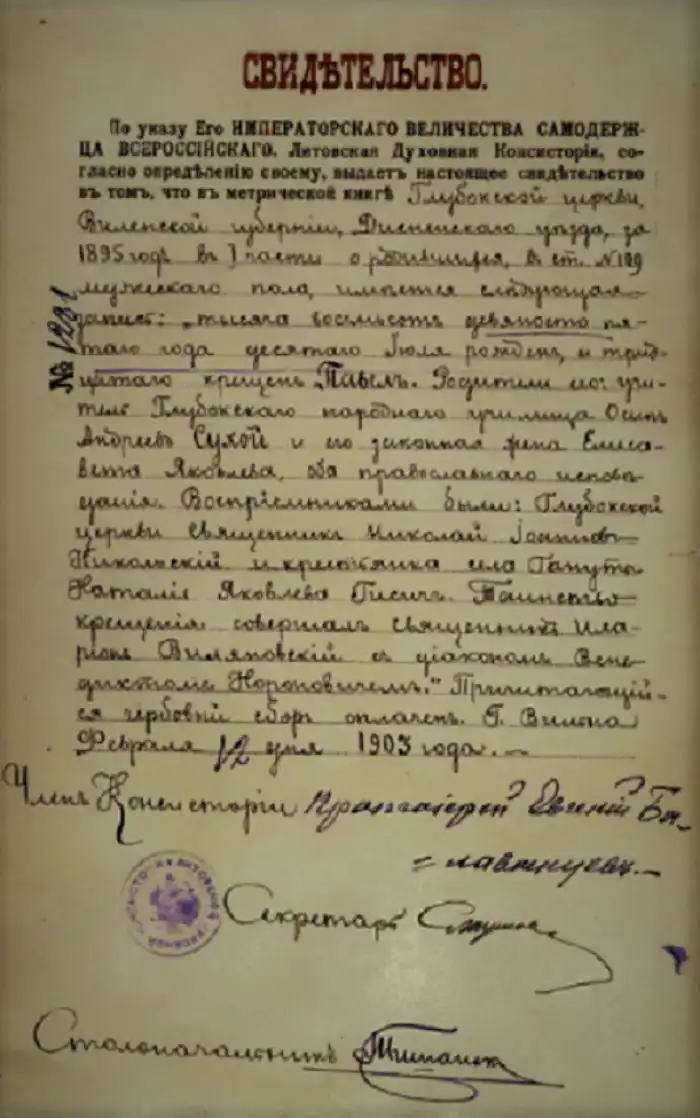 СВИДѢТЕЛЬСТВО.
По указу Его ИМПЕРАТОРСКАГО ВЕЛИЧЕСТВА САМОДЕРЖ-
ЦА ВСЕРОССІЙСКАГО, Литовская Духовная Консисторія, со-
гласно опредѣленію своему, выдаетъ настоящее свидѣтельство
въ томъ, что въ метрической книгѣ Глубокской церкви,
Виленской губерніи, Дисненскаго уѣзда, за
1895 годъ въ I части о родившихся, въ ст. №
мужескаго пола, имѣется слѣдующая
запись: „тысяча восемьсотъ девяносто пя-
таго года десятаго Іюля рожденъ, и трид-
№ 1281
цатаго крещенъ Павелъ. Родители его: учи-
тель Глубокскаго народнаго училища Осипъ
Андреевъ Сухой и его законная жена Елиса-
вета Яковлева, оба православнаго исповѣ-
данія. Воспріемниками были: Глубокской
церкви Священникъ Николай Іоанновъ
Никольскій и крестьянка села
Наталія Яковлева Таинство
крещенія совершалъ Священникъ Ила-
ріонъ Виляновскій съ діакономъ Вене-
диктомъ Нороновичемъ." Причитающій-
ся гербовый сборъ оплаченъ. Г. Вильна
Февраля 12 дня 1903 года.
Членъ Консисторіи
Секретарь
Столоначальникъ